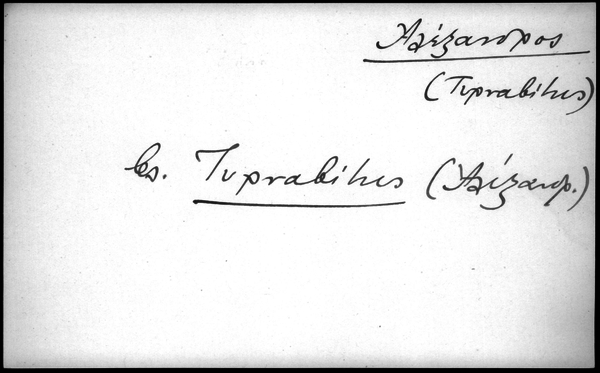 Ἀλέξανδρος
(Τυρναβίτης)
βλ. Τυρναβίτης (Ἀλέξανδρ.)